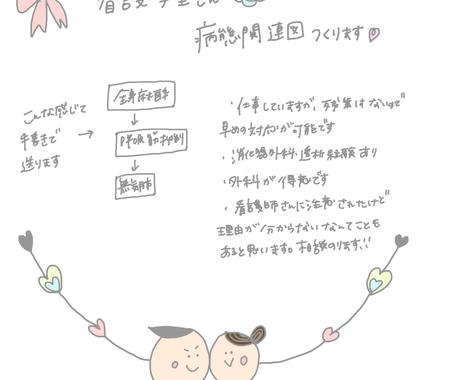 看護学生さん
病態関連図つくります
こんな感じで
手書きで
送ります
→
全身麻酔
↓
呼吸筋抑制
↓
無気肺
・仕事していますが、残業はないので
早めの対応が可能です
・消化器外科、透析経験あり
・外科が得意です
・看護師さんに注意されたけど
理由が分からないなんてことも
あると思います。相談のります!!